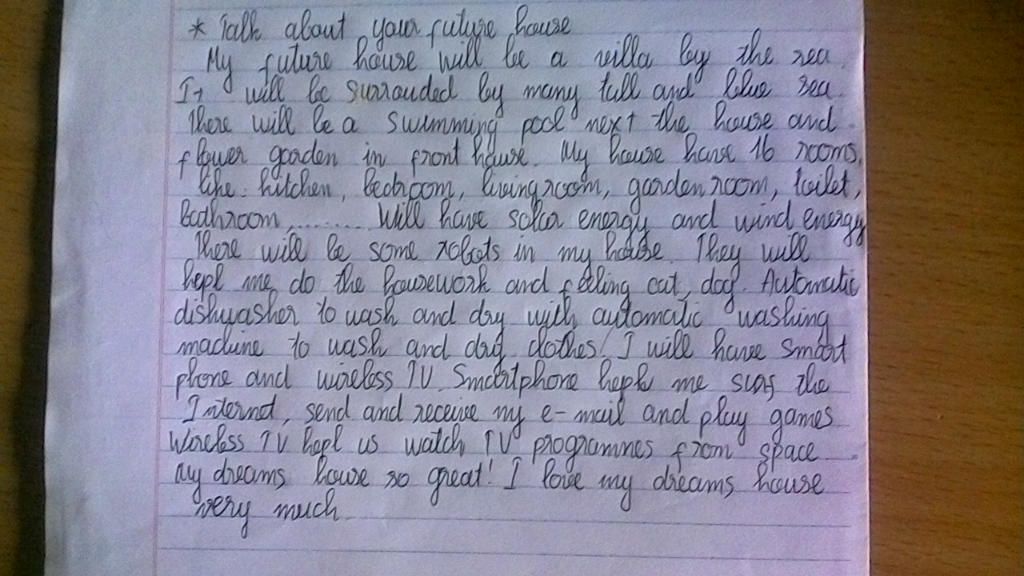 * Talk about your future house
My future house will be a villa by the sea.
It will be surrouded by many tall and blue sea.
There will be a swimming pool next the house and
flower garden in front house. My house have 16 rooms,
like: kitchen, bedroom, living room, garden room, toilet,
bathroom,......... Will have solar energy and wind energy
There will be some robots in my house. They will
hepl me do the housework and feeling cat, dog. Automatic
dishwasher to wash and dry with automatic washing
machine to wash and dry clothes! I will have smart
phone and wireless TV. Smartphone hepl me surf the
Internet, send and receive my e-mail and play games
Wireless TV hepl us watch TV programmes from space.
My dreams house so great! I love my dreams house
very much